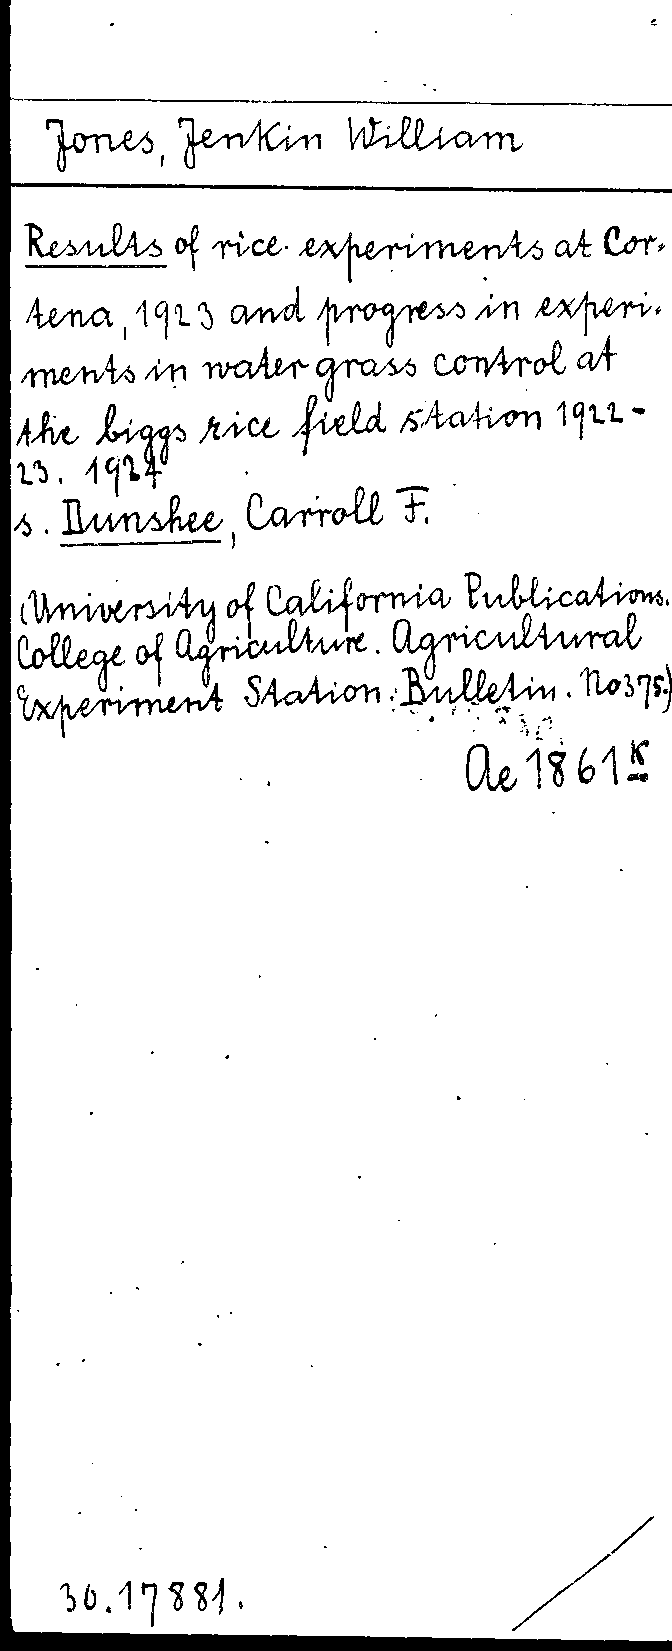 Jones, Jenkin William
Results of rice experiments at Cor-
tena, 1923 and progress in experi-
ments in water grass control at
the biggs rice field station 1922-
23. 1924
s. Dunshee, Carroll F.
(University of California Publications.
College of Agriculture. Agricultural
Experiment Station. Bulletin. No 375.)
Ae 1861 K
30.17881.